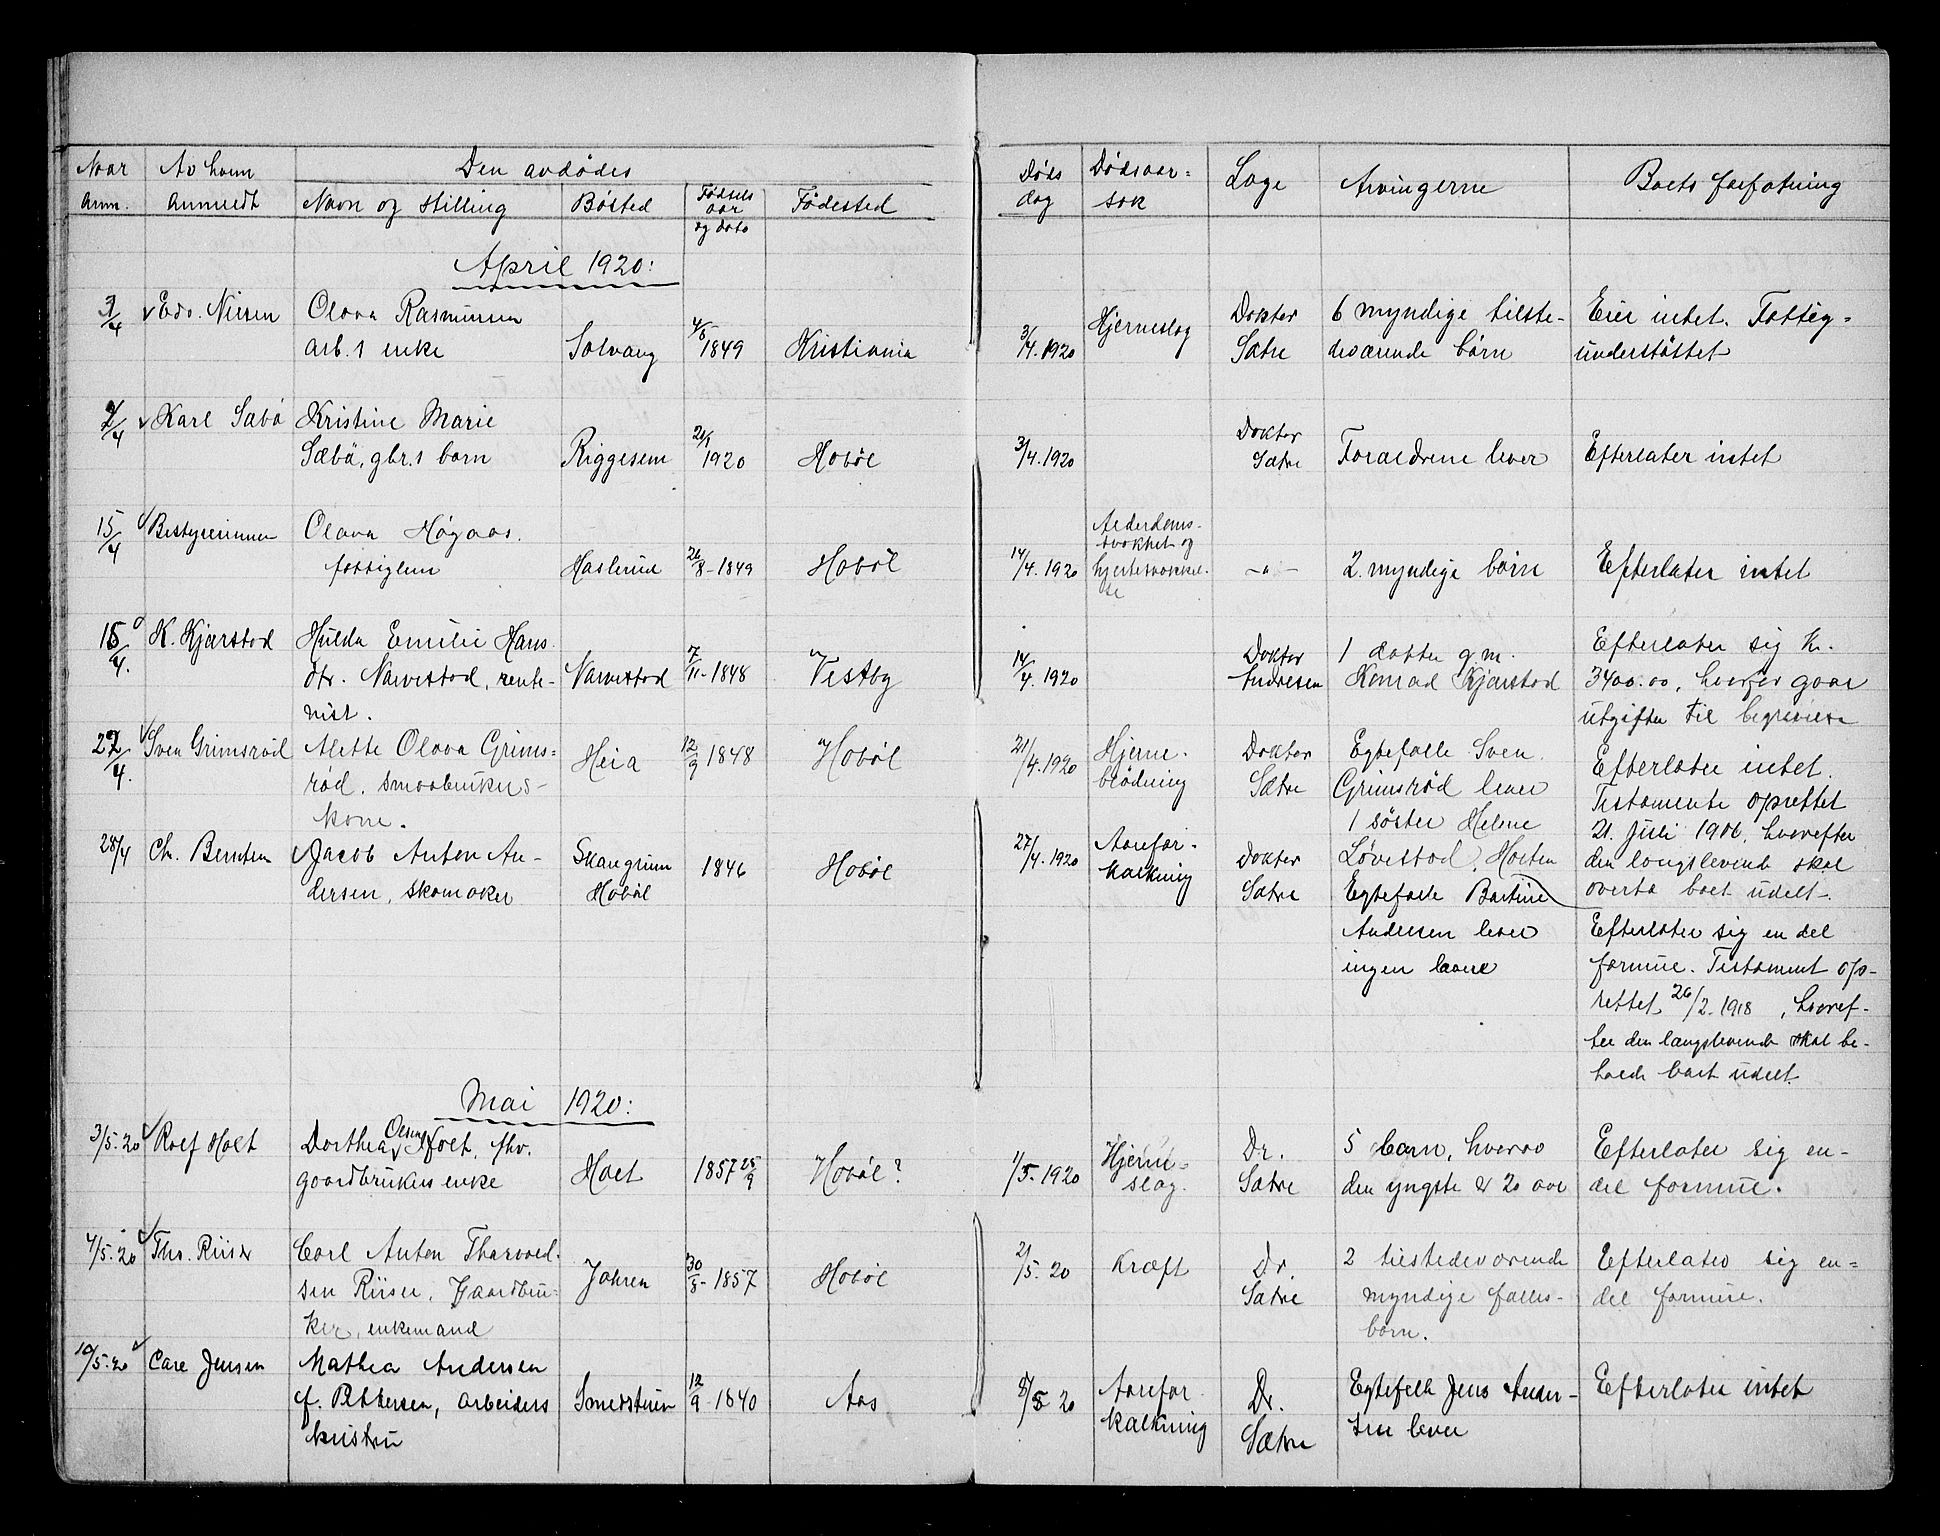 Naar
Anm.
Av hvem
anmeldt
Den avdödes
Navn og stilling
Bosted
Fødsels
aar
og dato
Födested
Døds
dag
Dødsaar=
sak
Læge
Arvingerne
Boets forfatning
April 1920:
3/4 Edv. Nilsen
Olava Rasmussen
arb.s enke
Solvang
4/5 1849
Kristiania
3/4. 1920
Hjerneslag
Doktor
Sætre
6 myndige tilste-
deværende børn
Eier intet. Fattig=
understøttet
7/4 Karl Sæbö
Kristine Marie
Sæbö, gbr.s barn
Riggesem
1920
Hobøl
3/4. 1920
Doktor
Sætre
Forældrene lever
Efterlater intet
15/4 Bestyrerinnen
Olava Høgaas.
fattiglem
Haslerud
26/8 - 1849
Hobøl
14/4. 1920
Alderdoms-
svakhet og
hjertesvækkel-
se
-"-
2 myndige børn
Efterlater intet
15/4. K. Kjærstad
Hulda Emilie Hans
dtr. Narvestad, rente-
nist.
Narvestad
7/11 - 1848
Vestby
14/4. 1920
Doktor
Andresen
1 datter g. m.
Konrad Kjærstad
Efterlater sig kr.
3400.00, hvorfor gaar
utgifter til begravelse
22/4. Sven Grimsrød
Alette Olava Grims=
rød, smaabrukers-
kone.
Heia
12/9 1848
Hobøl
21/4. 1920
Hjerne-
blødning
Doktor
Sætre
Egtefælle Sven
Grimsrød lever
1 søster Helene
Løvestad, Horten
Efterlater intet.
Testamente oprettet
21. Juli 1906, hvorefter
den længslevende skal
overta boet udelt.
28/4 Chr. Berntsen
Jacob Anton An-
dersen, skomaker
Skaugrum
Hobøl
1846
Hobøl
27/4. 1920
Aarefor-
kalkning
Doktor
Sætre
Egtefælle Bartine
Andersen lever
ingen barn
Efterlater sig en del
formue. Testament op-
rettet 26/2. 1918, hvoref-
ter den længslevende skal be-
holde boet udelt.
Mai 1920:
3/5. 20 Rolf Holt
Dorthea Olsen Holt, fhv.
gaardbrukers enke
Holt
1857 25/9
Hobøl?
1/5. 1920
Hjerne=
slag.
Dr.
Sætre
5 barn, hvorav
den yngste er 20 aar
Efterlater sig en-
del formue.
4/5. 20 Ths. Riiser
Carl Anton Thorvald-
sen Riiser, Gaardbru-
ker, enkemand
Jahren
30/8 - 1857
Hobøl
2/5. 20
Kræft
Dr.
Sætre
2 tilstedeværende
myndige fælles-
børn.
Efterlater sig en=
del formue.
10/5. 20 Carl Jensen
Mathea Andersen
f. Pettersen, arbeiders
hustru
Smedstuen
12/9 - 1840
Aas
8/5 20
Aarefor-
kalkning
Dr.
Sætre
Egtefelle Jens Ander-
sen lever
Efterlater intet